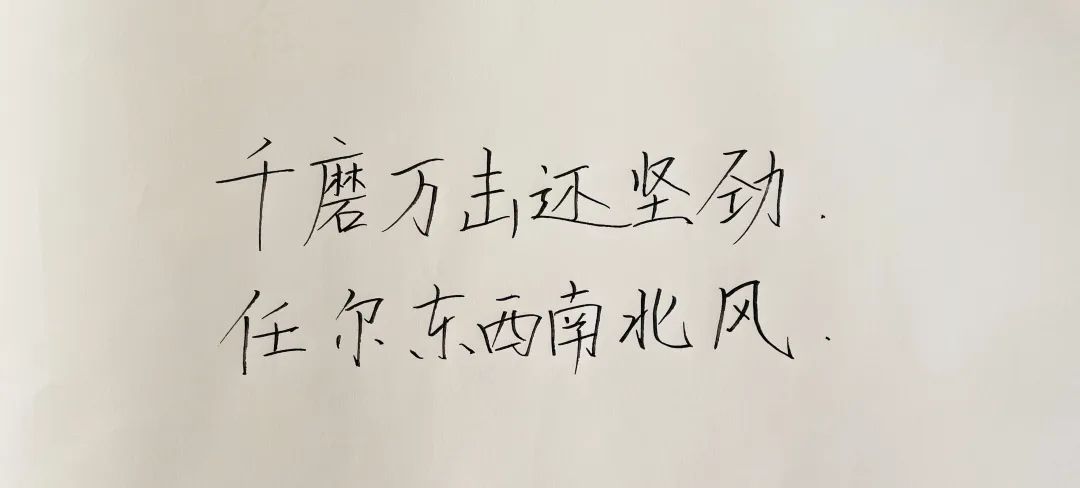 千磨万击还坚劲.
任尔东西南北风.